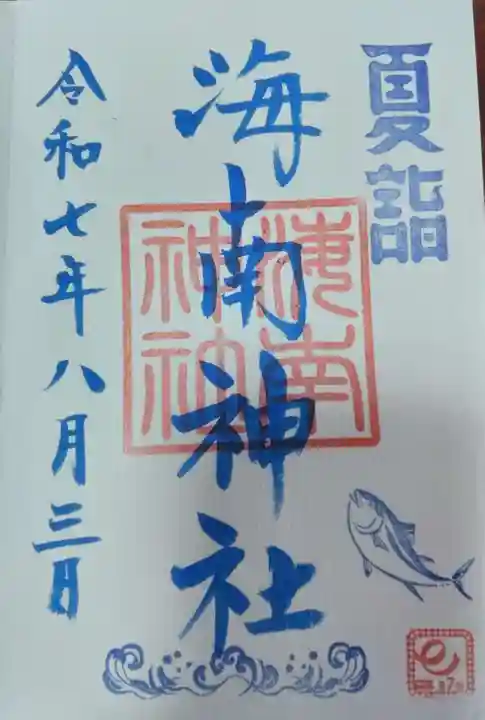 夏詣
海南神社
海南
神社
令和七年八月三日